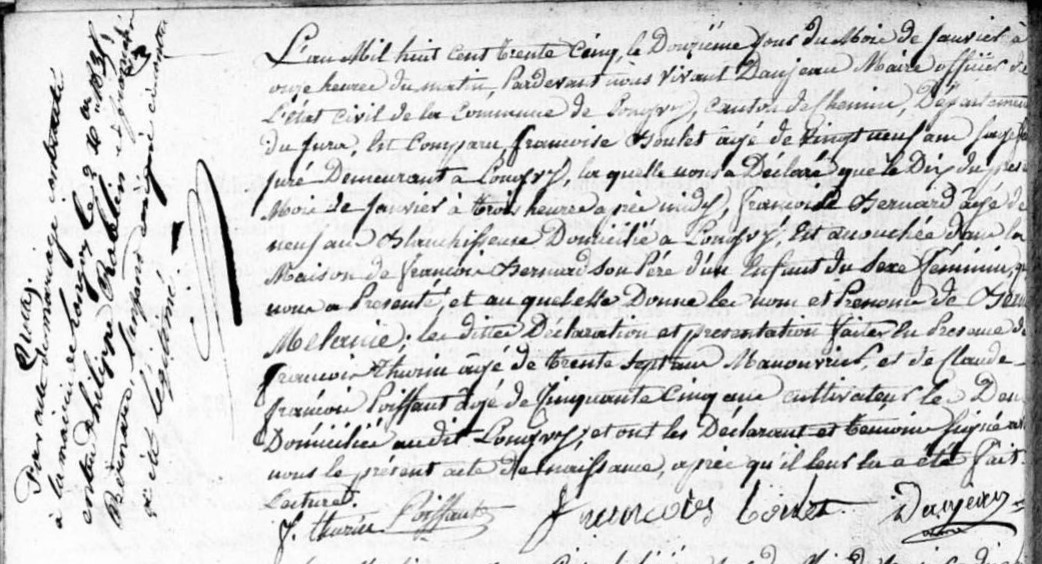 L'an Mil huit cent trente cinq, le Douzième Jour du Mois de Janvier à
onze heures du matin, Pardevant nous vivant Danjean Maire officier de
L'état civil de la commune de Longwy, canton de Chemin, Département
du Jura, Est Comparu françoise Boulet âgé de vingt neuf ans sage f
juré Demeurant à Longwy, la quelle nous a Déclaré que le Dix du prese
Mois de Janvier à trois heures apres midy, francoise Bernard âgé de
neuf ans Blanchisseuse Domicilié à Longwy, Est accouchée dans la
Maison de francois Bernard son Père d'un Enfant du Sexe feminin, qu
nous a Presenté et au quel elle Donne les nom et Prenoms de Bern
Melanie; les dittes Declaration et presentation faites En Presence de
francois thurin âgé de trente sept ans Manouvrier, et de Claude
francois Poissant âgé de Cinquante cinq ans cultivateur les Deux
Domiciliés audit Longwy, et ont les Déclarant et temoins signé avec
nous le présent acte de naissance, après qu'il leurs en a été fait
Lecture.
f. thurin Poissant françoise Boulet Danjean
Par acte de mariage contracté
à la mairie de Longwy le
entre Philippe
Bernard
a été légitimé